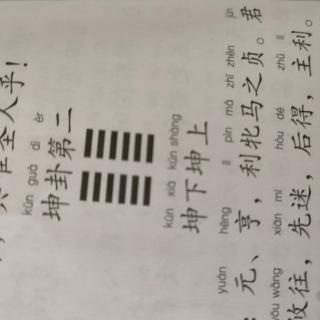 圣人乎！
kūn guà dì èr
坤卦第二
kūn xià kūn shàng
坤下坤上
yuán hēng lì pìn mǎ zhī zhēn jūn
元、亨，利牝马之贞。君
yōu wǎng xiān mí hòu dé zhǔ lì
攸往，先迷，后得，主利。